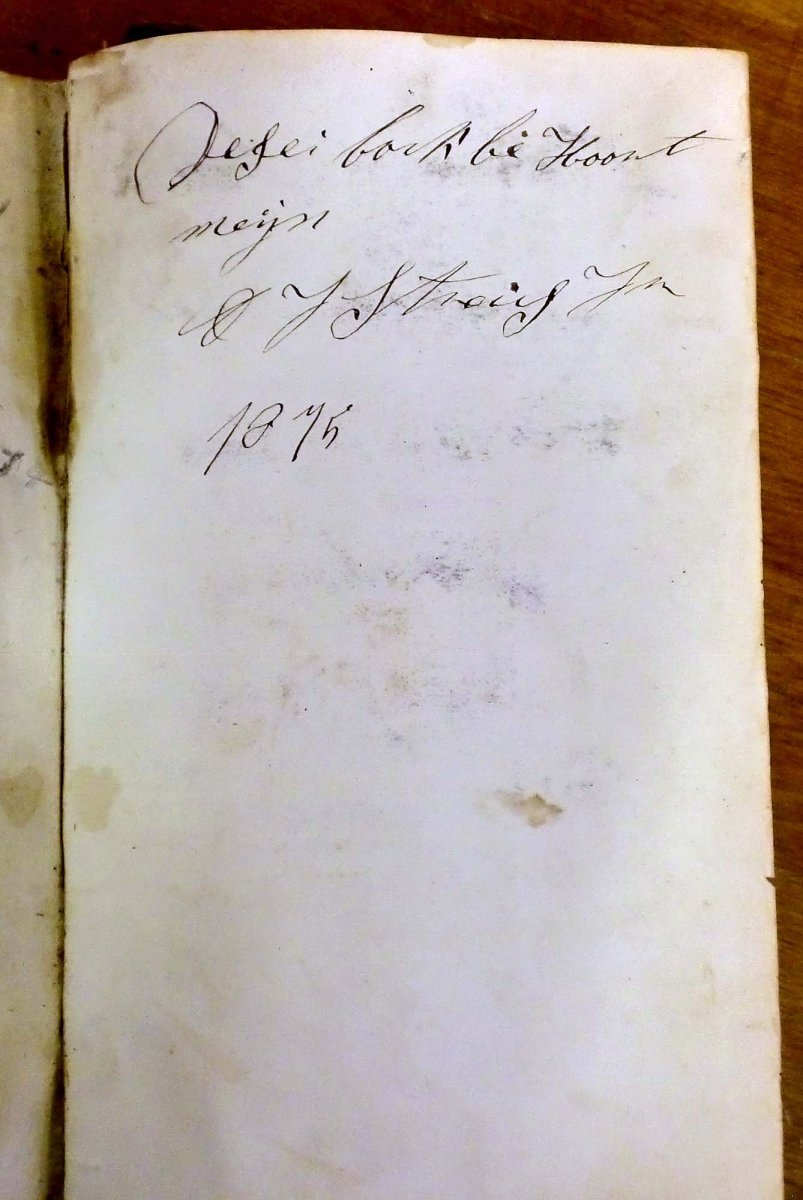 Desei boek be Hoort
meijn
D J Streich Jn
1875